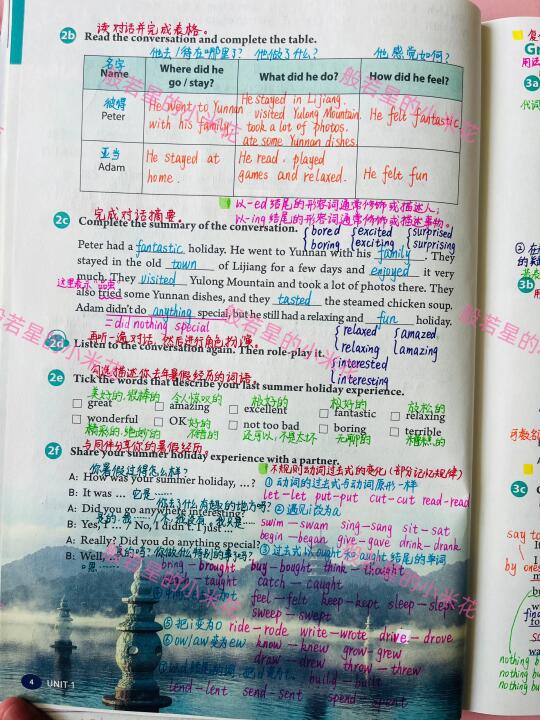 读对话并完成表格。
2b Read the conversation and complete the table.
他去/待在哪里了? 他做了什么? 他感觉如何?
名字
Name
Where did he go / stay?
What did he do?
How did he feel?
彼得
Peter
He went to Yunnan with his family
He stayed in Lijiang. visited Yulong Mountain. took a lot of photos. ate some Yunnan dishes.
He felt fantastic
亚当
Adam
He stayed at home.
He read. played games and relaxed.
He felt fun
以-ed结尾的形容词通常修饰或描述人;
以-ing结尾的形容词通常修饰或描述事物。
完成对话摘要。
2c Complete the summary of the conversation.
bored excited surprised
boring exciting surprising
Peter had a fantastic holiday. He went to Yunnan with his family. They
stayed in the old town of Lijiang for a few days and enjoyed it very
much. They visited Yulong Mountain and took a lot of photos there. They
这里表示“品尝”
also tried some Yunnan dishes, and they tasted the steamed chicken soup.
Adam didn't do anything special, but he still had a relaxing and fun holiday.
=did nothing special
relaxed amazed
relaxing amazing
interested
interesting
再听一遍对话,然后进行角色扮演。
2d Listen to the conversation again. Then role-play it.
勾选描述你去年暑假经历的词语。
2e Tick the words that describe your last summer holiday experience.
美好的,很棒的 令人惊叹的 极好的 极好的 放松的
great amazing excellent fantastic relaxing
wonderful OK 好的 not too bad boring terrible
精彩的,绝妙的 不错的 还可以,不是太坏 无聊的 糟糕的
与同伴分享你的暑假经历。
2f Share your summer holiday experience with a partner.
你暑假过得怎么样?
A: How was your summer holiday, ...?
B: It was ... 它是……
你去了什么有趣的地方吗?
A: Did you go anywhere interesting?
B: Yes, I ... / No, I didn't. I just ...
A: Really? Did you do anything special?
真的吗?你做什么特别的事了吗?
B: Well, ...
嗯……
不规则动词过去式的变化(部分记忆规律)
①动词的过去式与动词原形一样
let-let put-put cut-cut read-read
②遇见i改为a
swim-swam sing-sang sit-sat
begin-began give-gave drink-drank
③过去式以ought和aught结尾的单词
bring-brought buy-bought think-thought
taught catch-caught
feel-felt keep-kept sleep-slept
sweep-swept
⑤把i变为o ride-rode write-wrote drive-drove
⑥ow/aw变为ew know-knew grow-grew
draw-drew throw-threw
build-built
lend-lent send-sent spend-spent
4 UNIT 1
般若星的小米花
3a
代词
3b
3c
say to
by ones